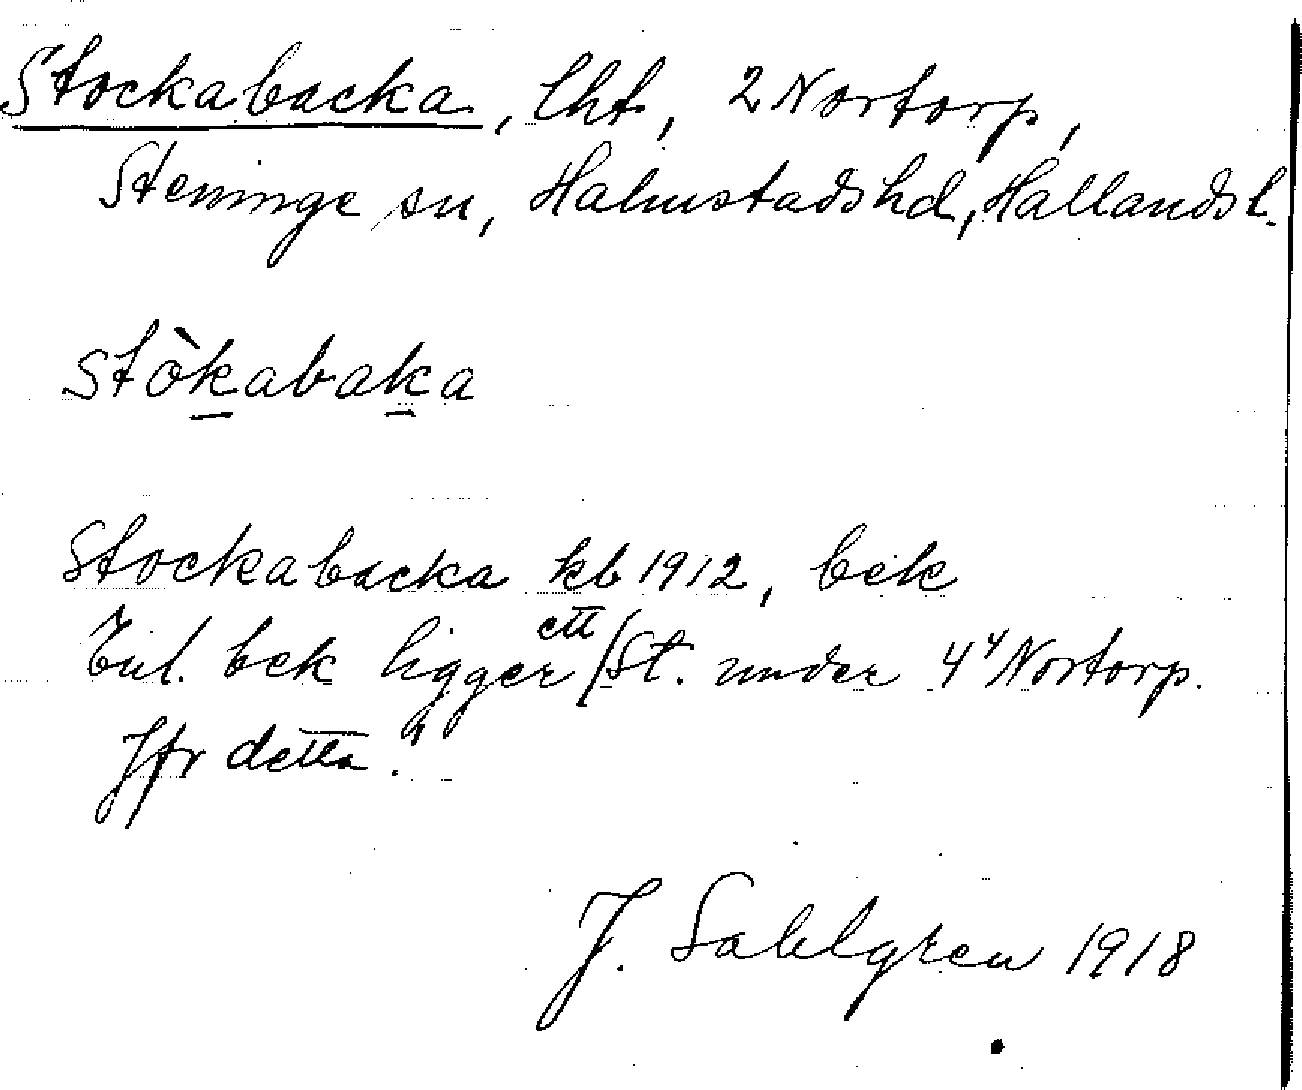 Stockabacka, lht, 2 Nortorp,
Steninge sn, Halmstads hd, Hallands l.
stòkabaka
Stockabacka kb 1912, bek
Enl. bek ligger ett St. under 4" Nortorp.
Jfr detta."
J. Sahlgren 1918